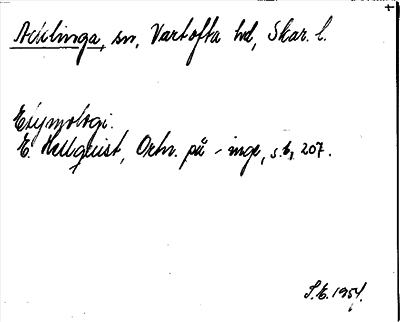 Acklinga, sn, Vartofta hd, Skar. l.
Etymologi.
E. Hellquist, Ortn. på -inge, s. 6, 207.
S.E. 1954.